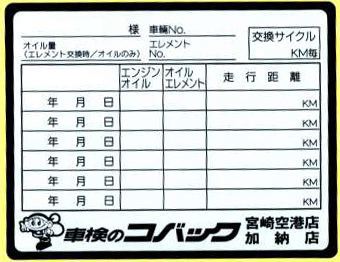 様 車輛No.
オイル量
(エレメント交換時/オイルのみ)
エレメント
No.
交換サイクル
KM毎
エンジン
オイル
オイル
エレメント
走行距離
年 月 日 KM
年 月 日 KM
年 月 日 KM
年 月 日 KM
年 月 日 KM
年 月 日 KM
車検のコバック
宮崎空港店
加納店